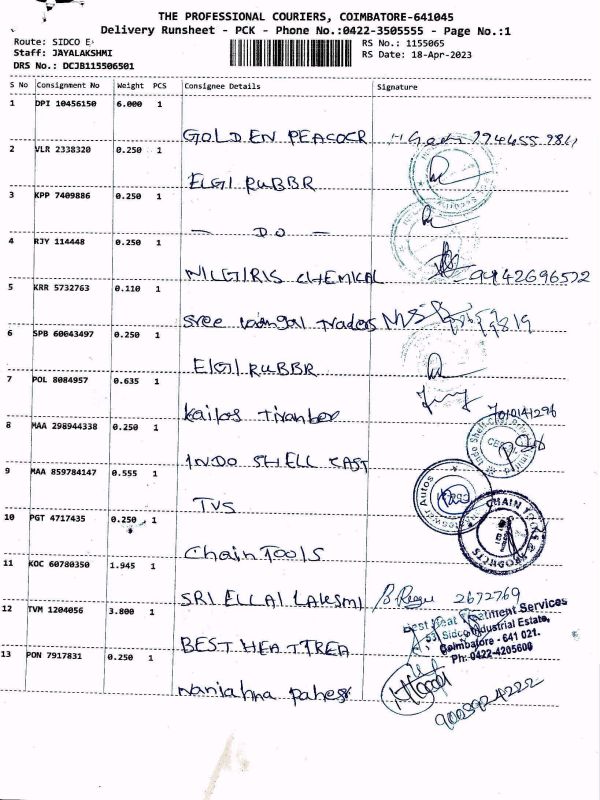 THE PROFESSIONAL COURIERS, COIMBATORE-641045
Delivery Runsheet - PCK - Phone No.:0422-3505555 - Page No.:1
Route: SIDCO E
RS No.: 1155065
Staff: JAYALAKSHMI
RS Date: 18-Apr-2023
DRS No.: DCJB115506501
S No Consignment No Weight PCS Consignee Details Signature
1 DPI 10456150 6.000 1
GOLDEN PEACOCK
2 VLR 2338320 0.250 1
ELGI RUBBR
3 KPP 7409886 0.250 1
— DO —
4 RJY 114448 0.250 1
NILGIRIS CHEMICAL 9442696522
5 KRR 5732763 0.110 1
Sree traders
6 SPB 60043497 0.250 1
ELGI RUBBR
7 POL 8084957 0.635 1
Kailas
8 MAA 298944338 0.250 1
INDO SHELL CAST
9 MAA 859784147 0.555 1
TVS
10 PGT 4717435 0.250 1
CHAIN TOOLS & PRODUCTS
Chain TOOLS
11 KOC 60780350 1.945 1
SRI ELLAI LAKSMI 2672769
12 TVM 1204056 3.800 1
Best Heat Treatment Services
Sidco Industrial Estate,
Coimbatore - 641 021.
Ph: 0422-4205600
BEST HEAT TREA
13 PON 7917831 0.250 1